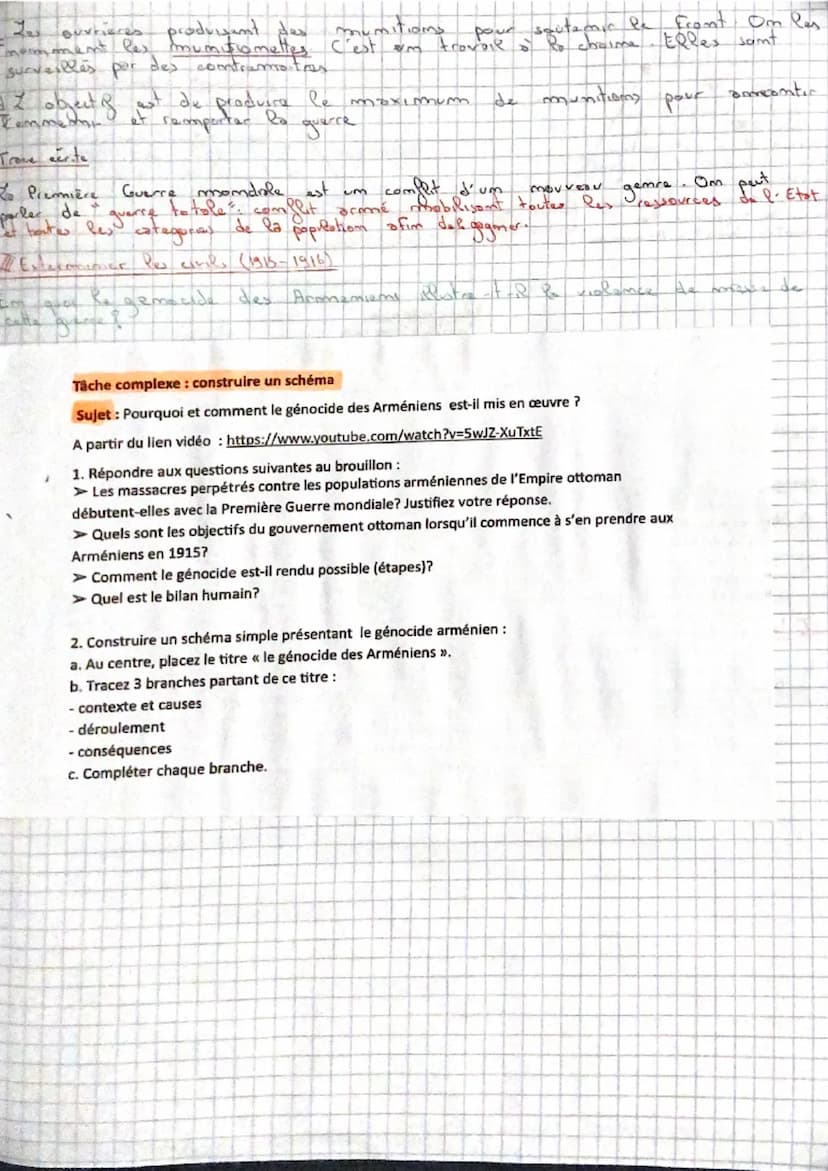 Les ouvrières produisent des munitions pour soutenir le front. On les
nomment les munitionettes. C'est un travail à la chaîne. Elles sont
surveillés par des contremaitres
L'objectif est de produire le maximum de munitions pour
l'ennemi et remporter la guerre
Trace écrite
La Première Guerre mondiale est un conflit d'un nouveau genre. On peut
parler de "guerre totale": conflit armé mobilisant toutes les ressources de l'Etat
et toutes les catégories de la population afin de la gagner.
Exterminer les civils (1915-1916)
En quoi le génocide des Arméniens illustre-t-il la violence de masse de
cette guerre?
Tâche complexe : construire un schéma
Sujet : Pourquoi et comment le génocide des Arméniens est-il mis en œuvre ?
A partir du lien vidéo : https://www.youtube.com/watch?v=5wJZ-XuTxtE
1. Répondre aux questions suivantes au brouillon :
➢ Les massacres perpétrés contre les populations arméniennes de l'Empire ottoman
débutent-elles avec la Première Guerre mondiale? Justifiez votre réponse.
➢ Quels sont les objectifs du gouvernement ottoman lorsqu'il commence à s'en prendre aux
Arméniens en 1915?
➢ Comment le génocide est-il rendu possible (étapes)?
➢ Quel est le bilan humain?
2. Construire un schéma simple présentant le génocide arménien :
a. Au centre, placez le titre « le génocide des Arméniens ».
b. Tracez 3 branches partant de ce titre :
- contexte et causes
- déroulement
- conséquences
c. Compléter chaque branche.